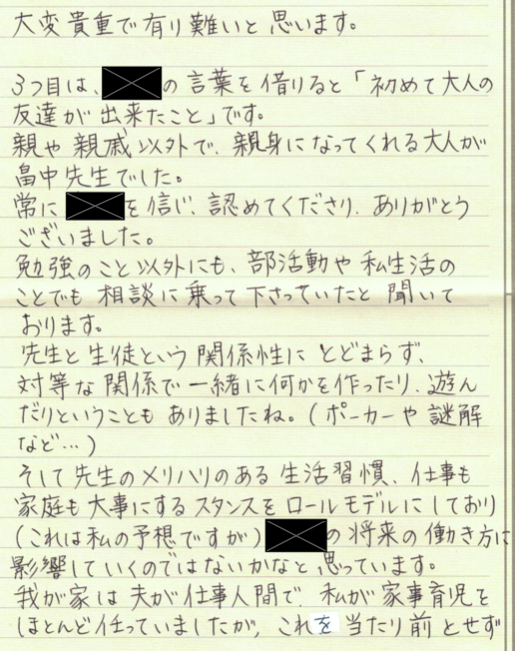 大変貴重で有り難いと思います。
3つ目は、の言葉を借りると「初めて大人の
友達が出来たこと」です。
親や親戚以外で、親身になってくれる大人が
畠中先生でした。
常にを信じ、認めてくださり、ありがとう
ございました。
勉強のこと以外にも、部活動や私生活の
ことでも相談に乗って下さっていたと聞いて
おります。
先生と生徒という関係性にとどまらず、
対等な関係で一緒に何かを作ったり、遊ん
だりということもありましたね。(ポーカーや謎解
など…)
そして先生のメリハリのある生活習慣、仕事も
家庭も大事にするスタンスをロールモデルにしており
(これは私の予想ですが)の将来の働き方に
影響していくのではないかなと思っています。
我が家は夫が仕事人間で、私が家事育児を
ほとんど任っていましたが、これを当たり前とせず